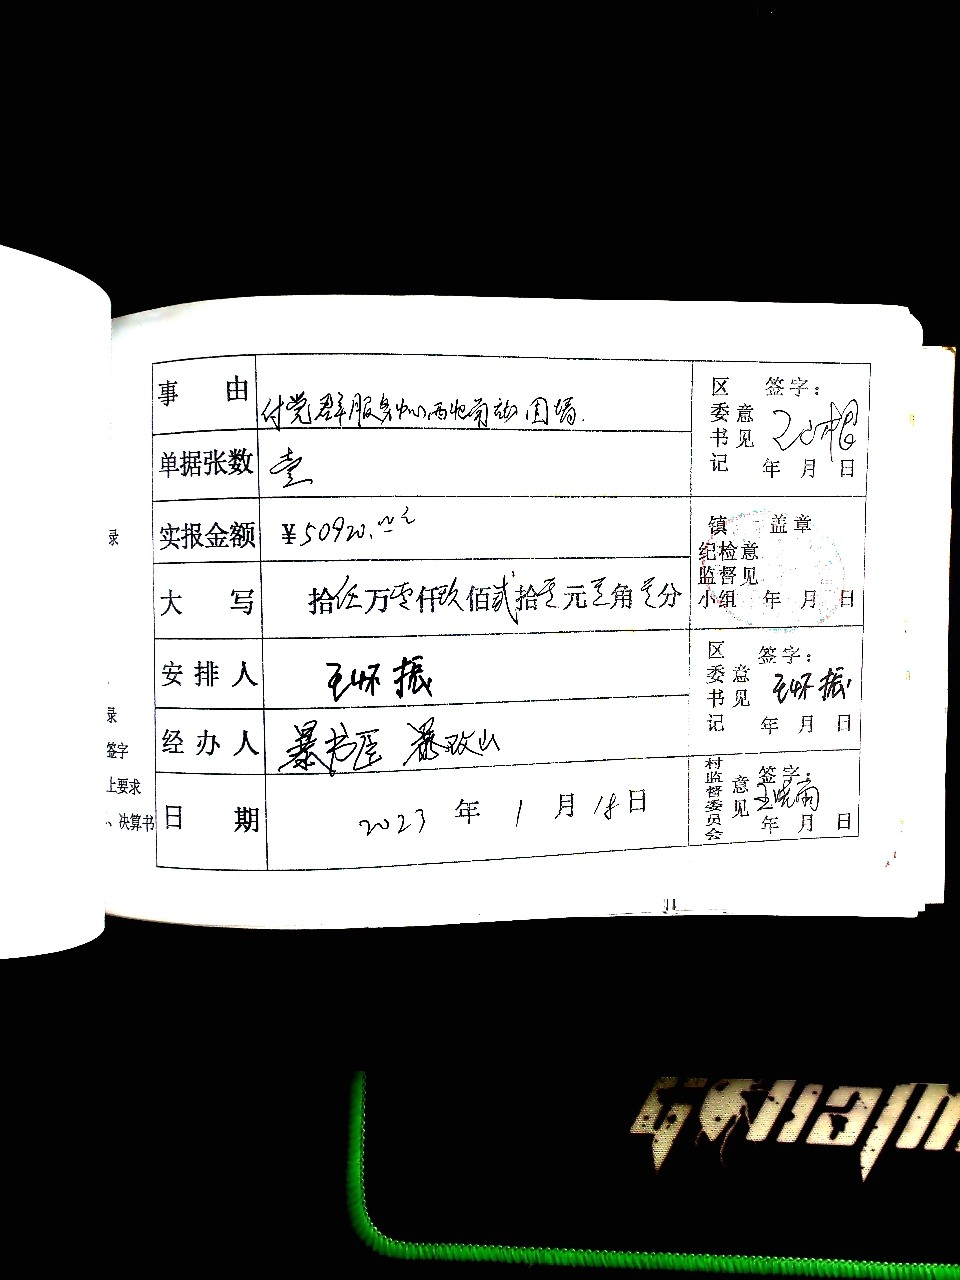 事 由 付党群服务中心西北角动围墙.
单据张数 壹
实报金额 ¥50920.00元
大 写 拾伍万零仟玖佰贰拾零元零角零分
安 排 人 王怀振
经 办 人 暴书臣
日 期 2023 年 1 月 18 日
区委书记 意见 签字:
年 月 日
镇纪检监督小组 意见 盖章
年 月 日
区委书记 意见 签字:
王怀振
年 月 日
村监督委员会 意见 签字:
王晓雨
年 月 日
录
录
签字
上要求
、决算书